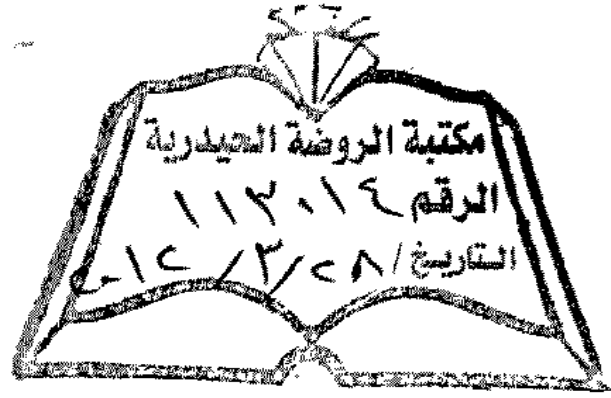 مكتبة الروضة الحيدرية
الرقم ١١٣٠١٤
التاريخ / ٢٨ / ٣ / ١٢